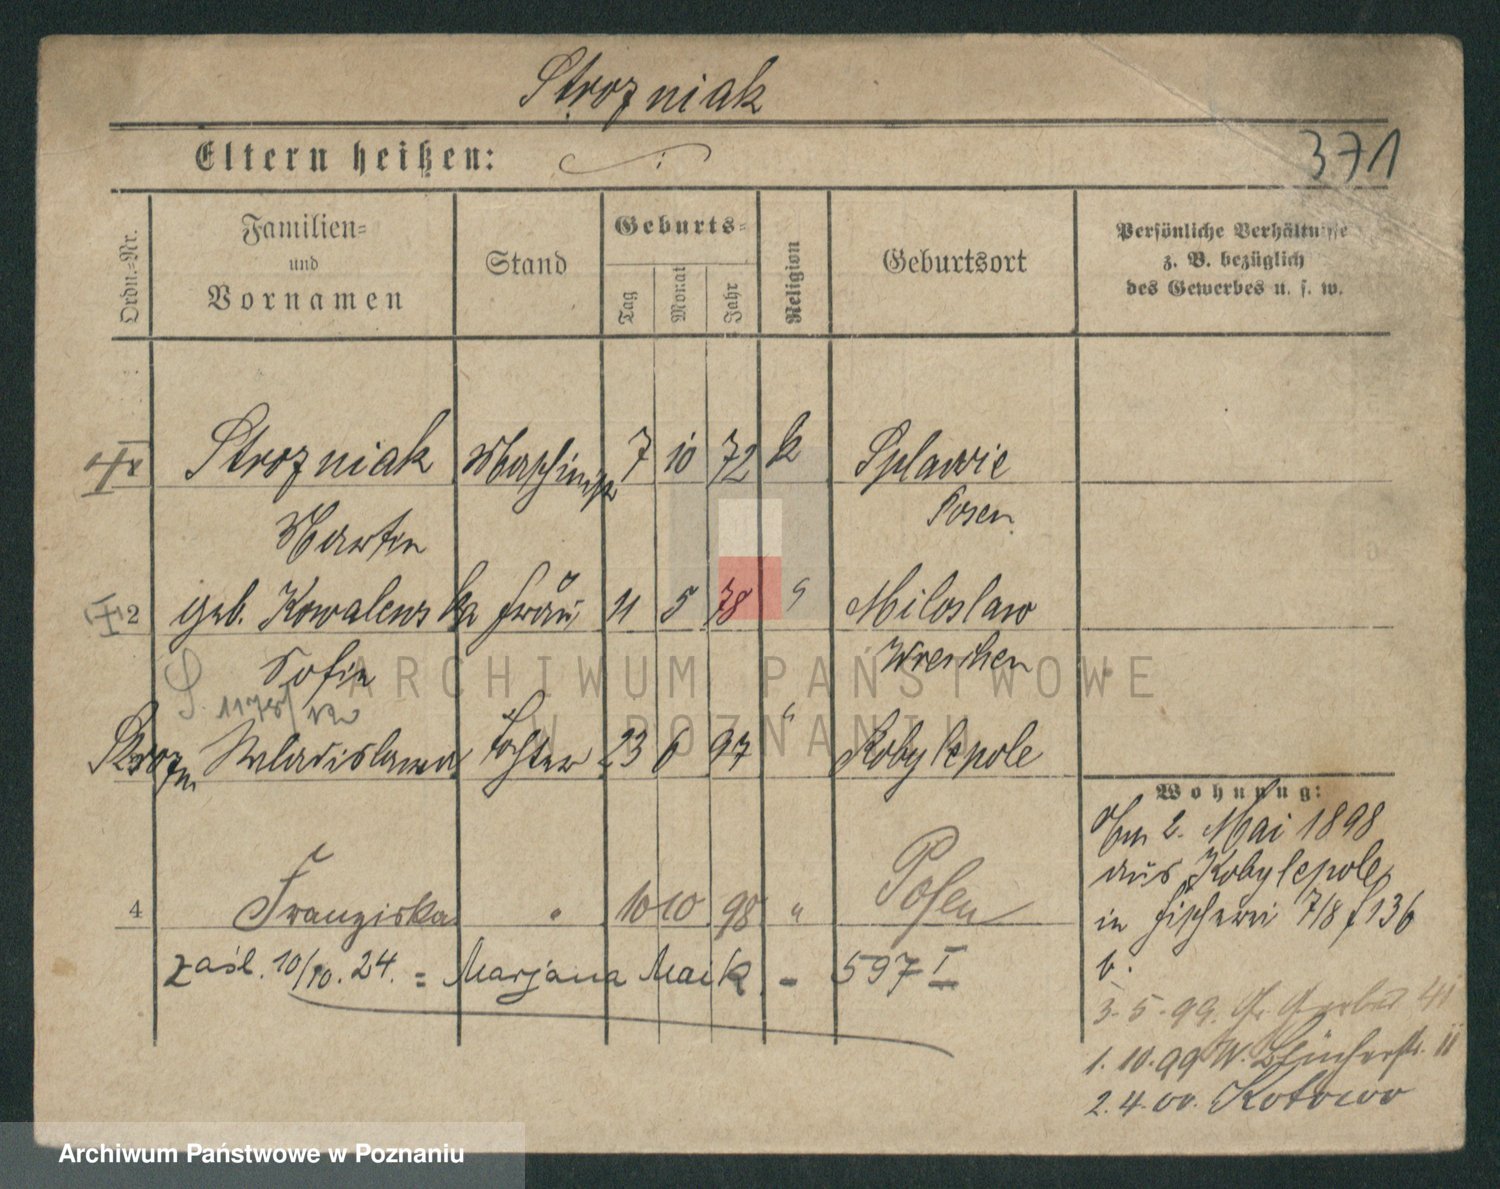 Strozniak
371
Eltern heißen:
Ordn.-Nr.
Familien- und Vornamen
Stand
Geburts-
Tag
Monat
Jahr
Religion
Geburtsort
Persönliche Verhältnisse
z. B. bezüglich
des Gewerbes u. s. w.
Strozniak Maschinist 7 10 72 k Splawie
Martin Posen
2 geb. Kowalewska Frau 11 5 78 " Miloslaw
Sofie Wreschen
Strozn. Wladislawa Tochter 23 6 97 " Kobylepole
4 Franziska " 10 10 98 " Posen
zaśl. 10/10. 24. = Marjana Maik - 597 I
Wohnung:
Am 2. Mai 1898
aus Kobylepole
in Fischerei 7/8 f 136
b.
3. 5. 99. Gr. Gerber 41
1. 10. 99 W. Blücherstr. 11
2. 4. 00. Kotowo
ARCHIWUM PAŃSTWOWE
W POZNANIU
Archiwum Państwowe w Poznaniu